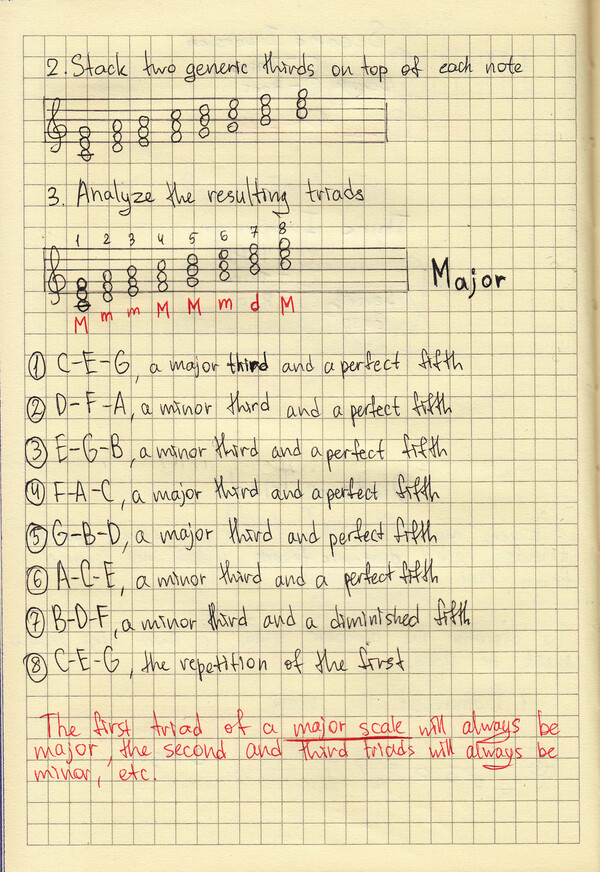 2. Stack two generic thirds on top of each note
3. Analyze the resulting triads
1 2 3 4 5 6 7 8
M m m M M m d M
Major
1 C-E-G, a major third and a perfect fifth
2 D-F-A, a minor third and a perfect fifth
3 E-G-B, a minor third and a perfect fifth
4 F-A-C, a major third and a perfect fifth
5 G-B-D, a major third and perfect fifth
6 A-C-E, a minor third and a perfect fifth
7 B-D-F, a minor third and a diminished fifth
8 C-E-G, the repetition of the first
The first triad of a major scale will always be
major, the second and third triads will always be
minor, etc.